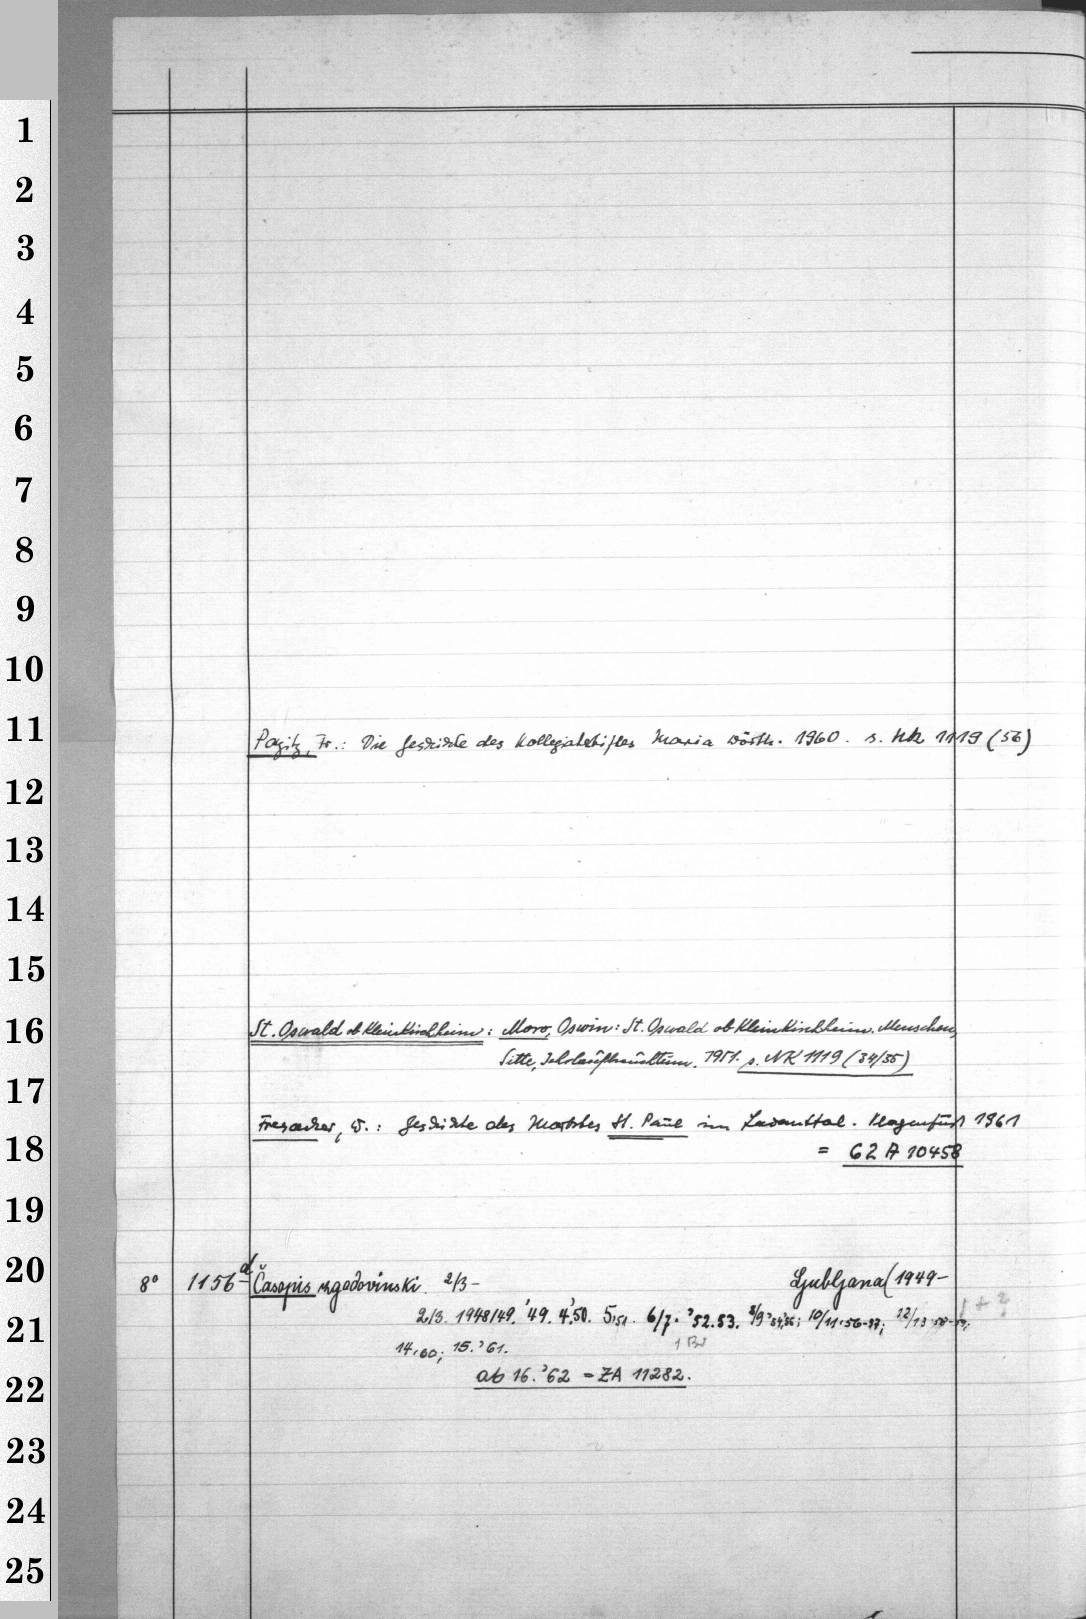 1
2
3
4
5
6
7
8
9
10
11
Pagitz, Fr.: Die Geschichte des Kollegiatstiftes Maria Wörth. 1960. s. NK 1119 (56)
12
13
14
15
16
St. Oswald ob Kleinkirchheim: Moro, Oswin: St. Oswald ob Kleinkirchheim. Menschen,
Sitte, 1951. s. NK 1119 (34/35)
17
Fresacher, W.: Geschichte des Marktes St. Paul im Lavanttal. Klagenfurt 1961
18
= 62 A 10458
19
20
8° 1156 d Časopis zgodovinski. 2/3- Ljubljana (1949-
2/3. 1948/49. '49. 4.'50. 5,'51. 6/7. '52.53. 8/9 10/11 '56-57; 12/13
21
1 Bd
14,'60; 15.'61.
22
ab 16.'62 = ZA 11282.
23
24
25